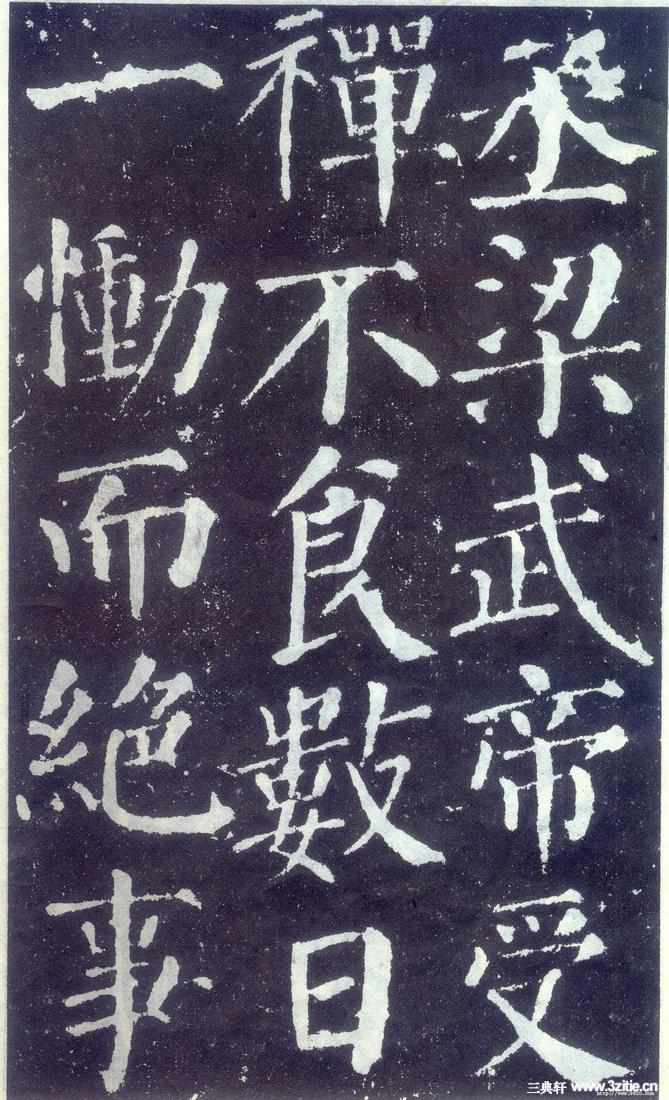 丞梁武帝受
禪不食數日
一慟而絕事
三典轩 www.3zitie.cn